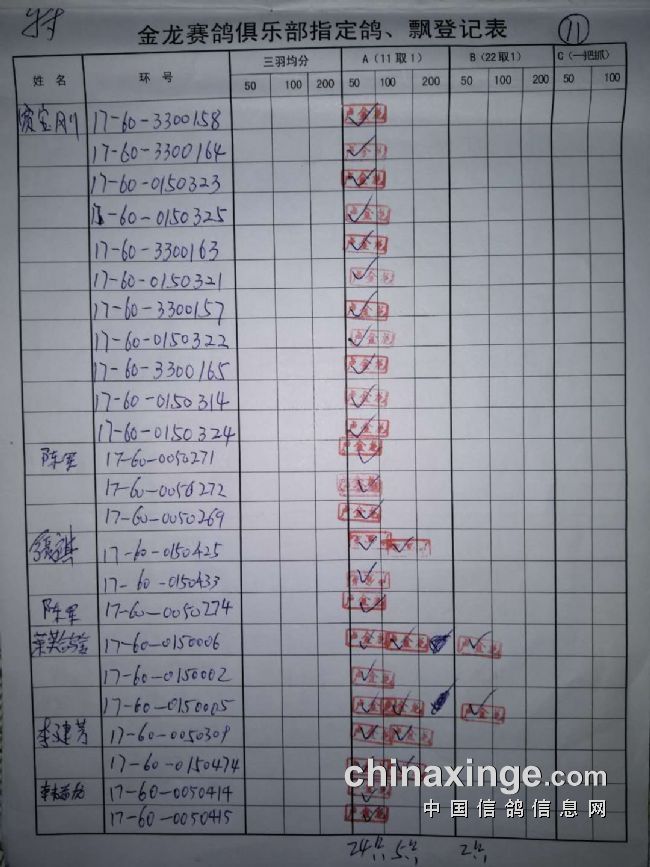 11
金龙赛鸽俱乐部指定鸽、飘登记表
姓 名 环 号 三羽均分 A (11取1) B (22取1) C (一把抓)
50 100 200 50 100 200 50 100 200 50 100
17-60-3300158
17-60-3300164
17-60-0150323
17-60-0150325
17-60-3300163
17-60-0150321
17-60-3300157
17-60-0150322
17-60-3300165
17-60-0150314
17-60-0150324
陈军 17-60-0050271
17-60-0050272
17-60-0050269
17-60-0150425
17-60-0150433
陈军 17-60-0050274
17-60-0150006
17-60-0150002
17-60-0150005
李建芳 17-60-0050309
17-60-0150474
17-60-0050414
17-60-0050415
chinaxinge.com
中国信鸽信息网
24 5 2